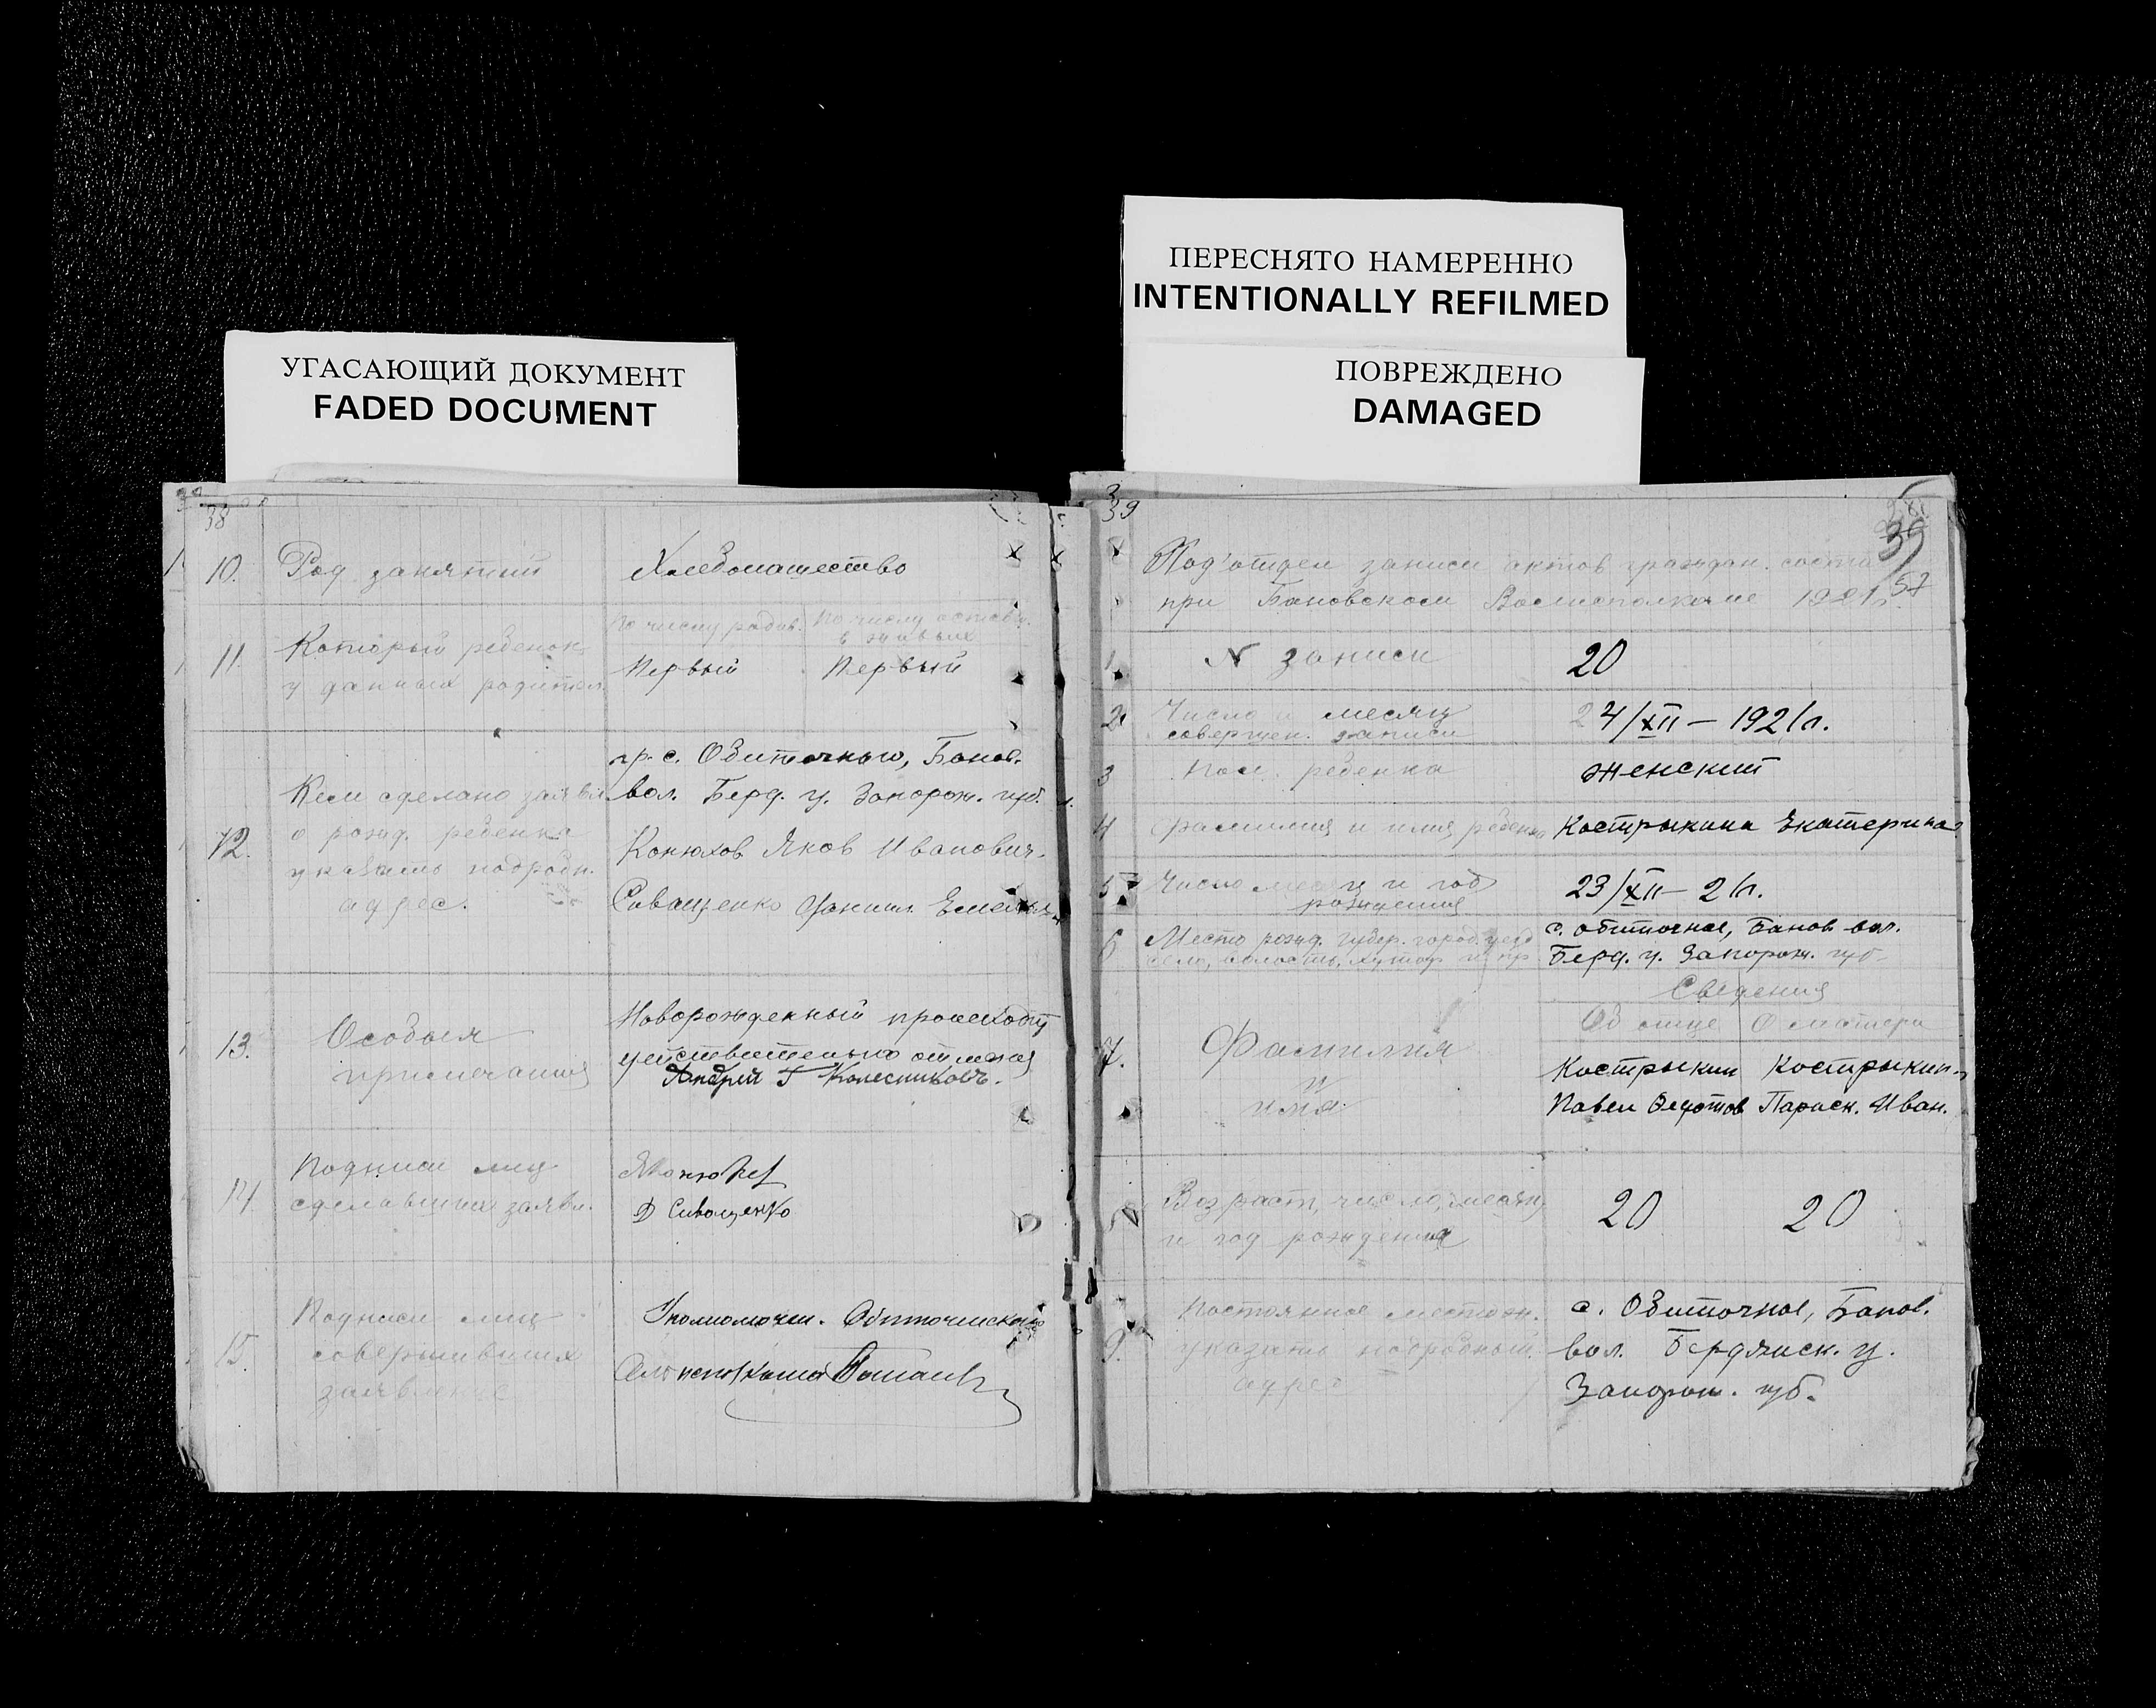 УГАСАЮЩИЙ ДОКУМЕНТ
FADED DOCUMENT
ПЕРЕСНЯТО НАМЕРЕННО
INTENTIONALLY REFILMED
ПОВРЕЖДЕНО
DAMAGED
38
10. Род занятий Хлебопашество
По числу родив. По числу оставш. в живых
11. Который ребенок Первый Первый
у данных родител.
гр. с. Обиточного, Банов.
Кем сделано заявл. вол. Берд. у. Запорож. губ.
12. о рожд. ребенка
Конюхов Яков Иванович.
указать подробн.
адрес. Савищенко Емельян
13. Особыя Новорожденный происходит
примечания действительно от меня
Андрей Г Колесниковъ.
14. Подписи лиц ЯКонюхов
сделавших заявл. Сиващенко
15. Подписи лиц Уполномочен. Обиточенского
совершивших
заявление
39
39
57
Под'отдел записи актов граждан. состо
при Бановском Волисполкоме 1921 г.
1 N записи 20
2 Число и месяц 24/XII – 1921 г.
совершен. записи
3 Пол ребенка женский
4 Фамилия и имя ребенка Кострыкина Екатерина
5 Число месяц и год 23/XII – 21 г.
рождения
6 Место рожд. губер. город. уезд с. обиточное, Банов. вол.
село, волость, хутор и пр Берд. у. Запорож. губ.
Сведения
Об отце О матери
7. Фамилия Кострыкин Кострыкин.
и
имя Павел Федотов Параск. Иван.
Возраст, число, месяц 20 20
и год рождения
9. Постоянное местож. с. Обиточное, Банов.
указать подробный вол. Бердянск. у.
адрес Запорож. губ.